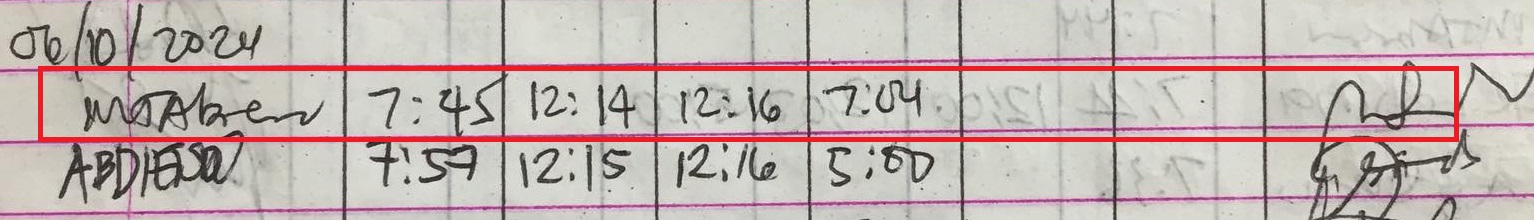 06/10/2024
MJAbren 7:45 12:14 12:16 7:04
7:57 12:15 12:16 5:00